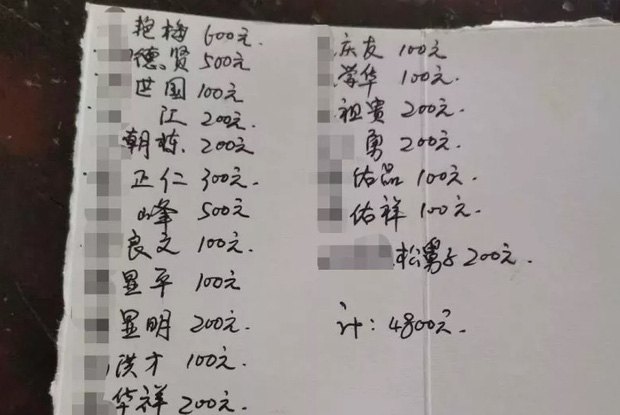 艳梅 600元.
德贤 500元
世国 100元
江 200元.
朝栋 200元
正仁 300元.
峰 500元
良文 100元.
显平 100元
显明 200元.
洪才 100元.
华祥 200元.
庆友 100元.
荣华 100元.
祖贵 200元.
勇 200元.
佑品 100元.
佑祥 100元.
松舅子 200元.
计: 4800元.